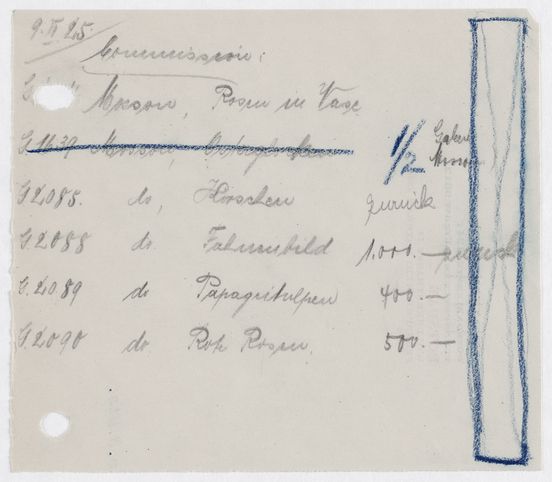 9.IV.25.
Commission:
Mosson, Rosen in Vase
G 1639 Mosson, 1/2 Galerie Mosson
G 2085. do, Häschen zurück
G 2088 do. Fahnenbild 1.000.— zurück
G. 2089 do Papageitulpen 400.—
G. 2090 do. Rote Rosen. 500.—